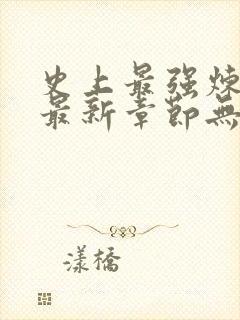 史上最强炼
最新章節無
漾橋